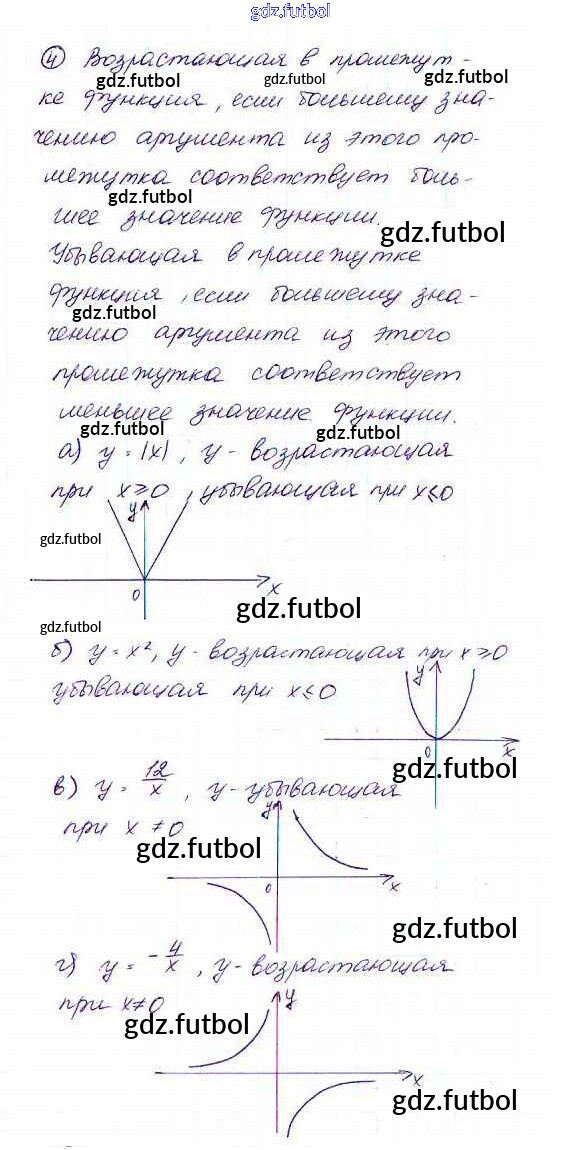 gdz.futbol
④ Возрастающая в промежут-
gdz.futbol gdz.futbol gdz.futbol
ке функция, если большему зна-
чению аргумента из этого про-
межутка соответствует боль-
gdz.futbol
шее значение функции.
gdz.futbol
Убывающая в промежутке
функция, если большему зна-
gdz.futbol
чению аргумента из этого
промежутка соответствует
меньшее значение функции.
gdz.futbol gdz.futbol
а) y = |x|, y - возрастающая
при x ⩾ 0, убывающая при x ⩽ 0
y
gdz.futbol
0 x
gdz.futbol
gdz.futbol
б) y = x², y - возрастающая при x ⩾ 0
убывающая при x ⩽ 0
y
0 x
gdz.futbol
в) y = 12/x, y - убывающая
при x ≠ 0
y
gdz.futbol
0 x
gdz.futbol
г) y = -4/x, y - возрастающая
при x ≠ 0
y
gdz.futbol
x
gdz.futbol